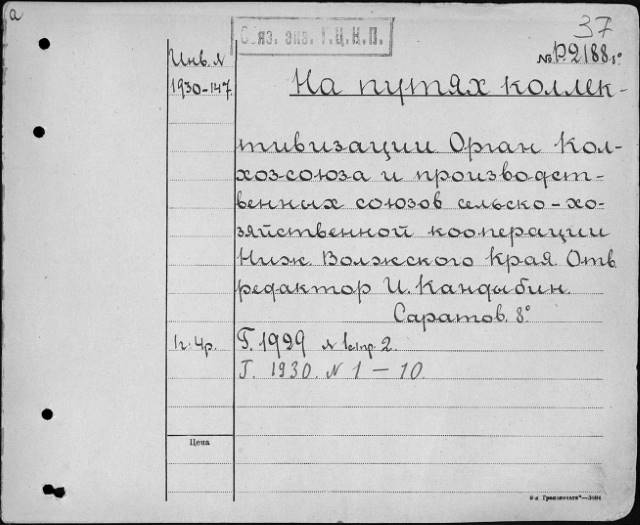 a
37
Обяз. экз. Г.Ц.К.П.
№ Р2188 г°
Инв. N
1930-147
На путях коллек-
тивизации Орган Кол-
хозсоюза и производст-
венных союзов сельско-хо-
зяйственной кооперации
Ниж. Волжского Края. Отв
редактор И. Кандыбин.
Саратов. 8°
1 г. 4 р. Г. 1929 N 1 апр. 2.
Г. 1930. N 1 — 10.
Цена